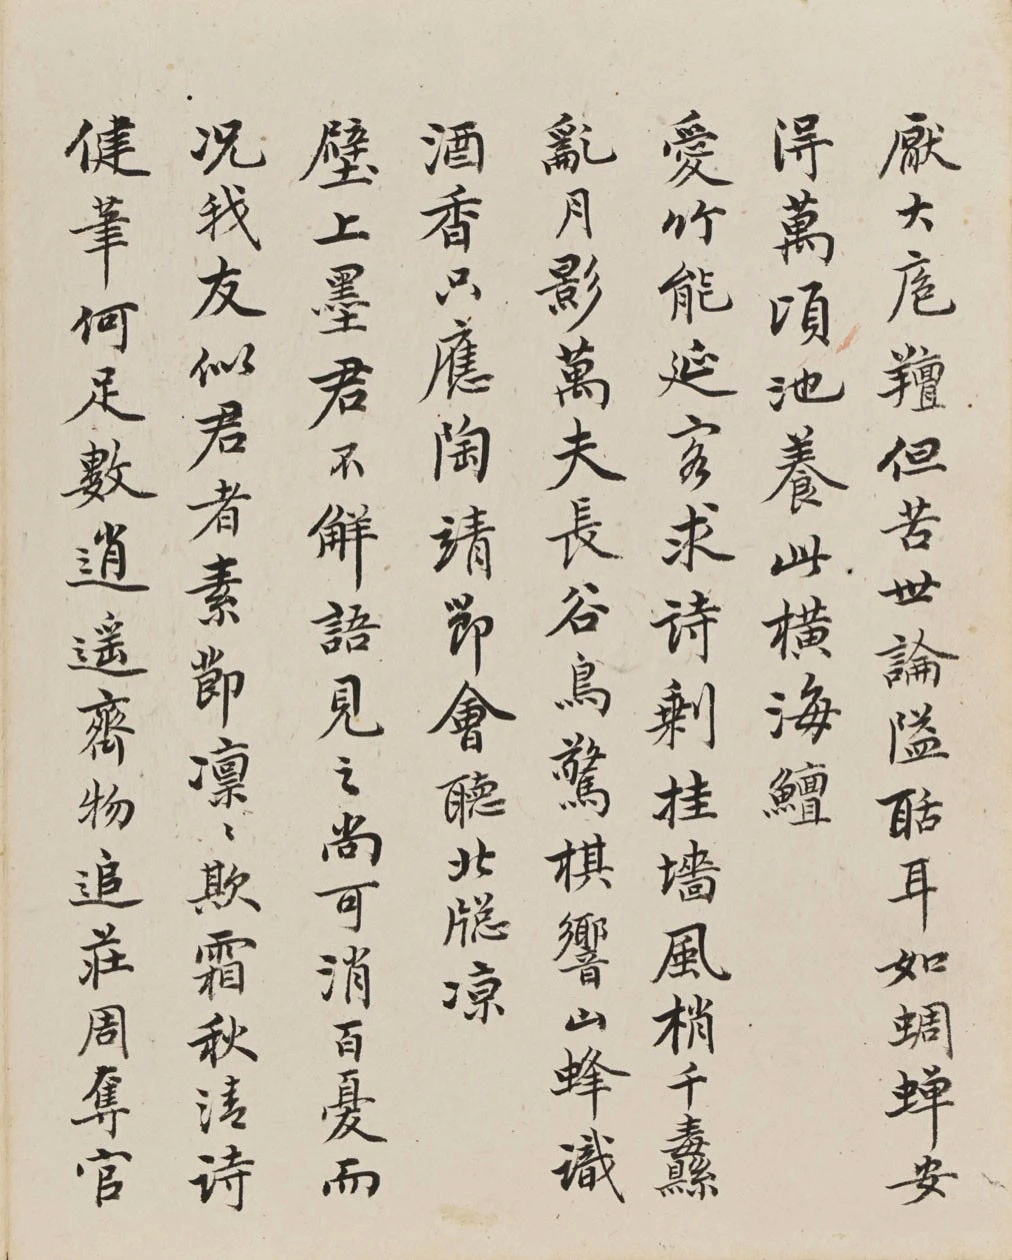 厭大庖羶但苦世論隘聒耳如蜩蟬安
得萬頃池養此橫海鱣
愛竹能延客求詩剩挂墻風梢千纛
亂月影萬夫長谷鳥驚棋響山蜂識
酒香只應陶靖節會聽北牕凉
壁上墨君不解語見之尚可消百憂而
况我友似君者素節凛〻欺霜秋清詩
健筆何足數逍遥齊物追莊周奪官